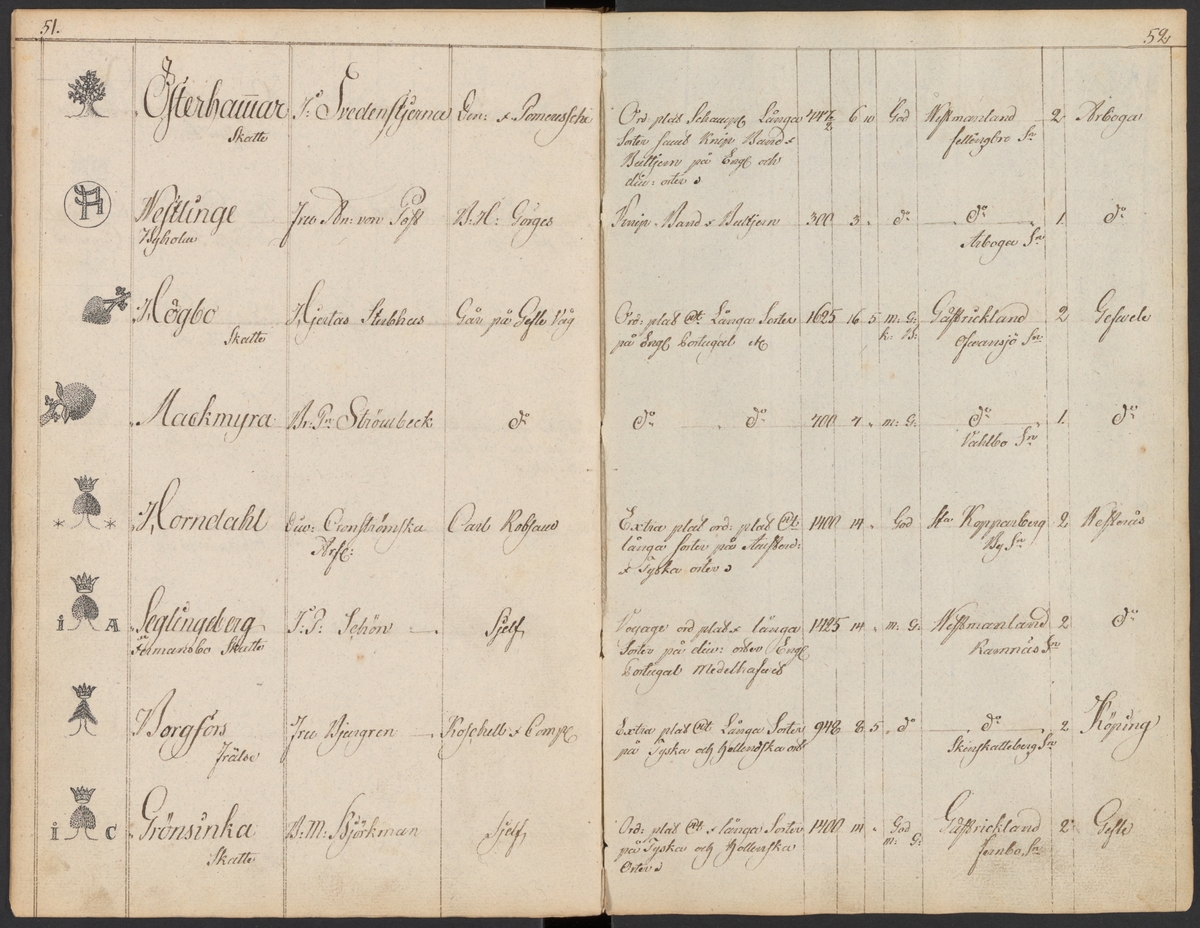 51.
52
Österhammar J: Svedenstjerna Den: & Pomeresche Ord: plåt Schampl Långa 447½ 6 10 God Westmanland 2 Arboga
Skatte Sorter samt Knip Band & Fellingbro Sn
Bultjern på Engl och
div: orter
Westlinge Fru An: von Post B: H: Görges Knip. Band & Bultjern 300 3 " do do 1. do
Nyholm Arboga Sn
Högbo Hjertas Sterbhus Går på Gefle Våg Ord: plåt Långa Sorter 1625 16 5 m: G: Gästrickland 2 Gefwele
Skatte på Engl Portugal k: B: Ofvansjö Sn
Mackmyra Br: Pn Strömbeck do do do 400 4 " m: G: do 1. do
Vahlbo Sn
Horndahl Cronströmska Carl Robsam Extra plåt ord: plåt 1400 14 " God Kopparberg 2 Westerås
Arf: långa sorter på By Sn
& Tyska orter
i A
Seglingsberg J: P: Schön Sjelf Voyage ord plåt & långa 1425 14 " m: G: Westmanland 2 do
Fermansbo Skatte Sorter på div: orter Engl Ramnäs Sn
Portugal Medelhafvet
Borgfors Fru Bjurgren Koschell & Comp Extra plåt Långa Sorter 948 8 5 do do 2 Köping
Frälse på Tyska och Hollendska ort Skinskatteberg Sn
i C
Grönsinka B: M: Björkman Sjelf Ord: plåt & långa Sorter 1400 14 " God Gästrickland 2 Gefle
Skatte på Tyska och Hollenska m: G: Fernbo Sn
Orter